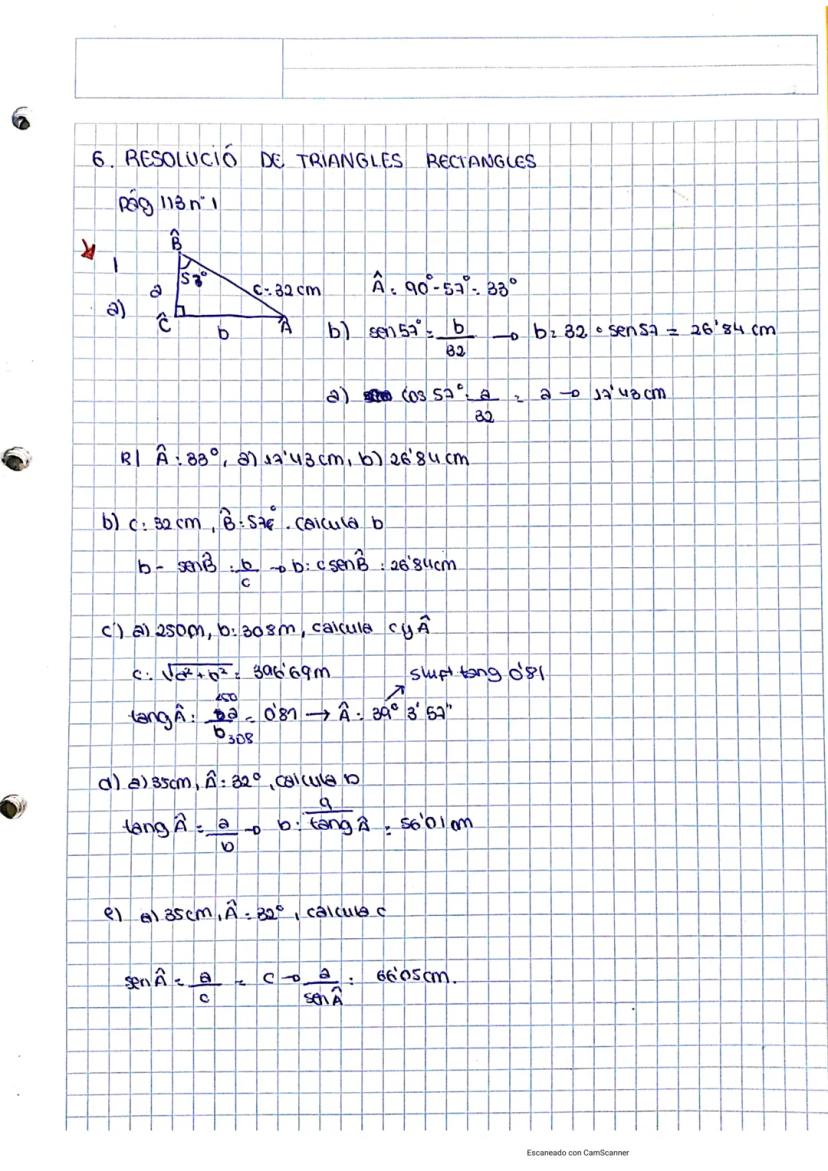 6. RESOLUCIÓ DE TRIANGLES RECTANGLES
Pág 113 nº 1
1
a)
B̂
57°
a
c = 32 cm
Ĉ
b
Â
Â = 90° - 57° = 33°
b) sen 57° = b/32 → b = 32 · sen 57 = 26'84 cm
a) cos 57° = a/32 = a → 17'43 cm
R/ Â = 33°, a) 17'43 cm, b) 26'84 cm
b) c = 32 cm, B̂ = 57°. calcula b
b - sen B̂ = b/c → b = c sen B̂ = 26'84 cm
c) a) 250m, b = 308m, calcula c y Â
c = √a² + b² = 396'69 m
shift tang 0'81
250
tang Â = a/b = 0'81 → Â = 39° 3' 57"
308
d) a) 35cm, Â = 32°, calcula b
tang Â = a/b → b = a/tang Â = 56'01 cm
e) a) 35cm, Â = 32°, calcula c
sen Â = a/c = c → a/sen Â = 66'05 cm.
Escaneado con CamScanner